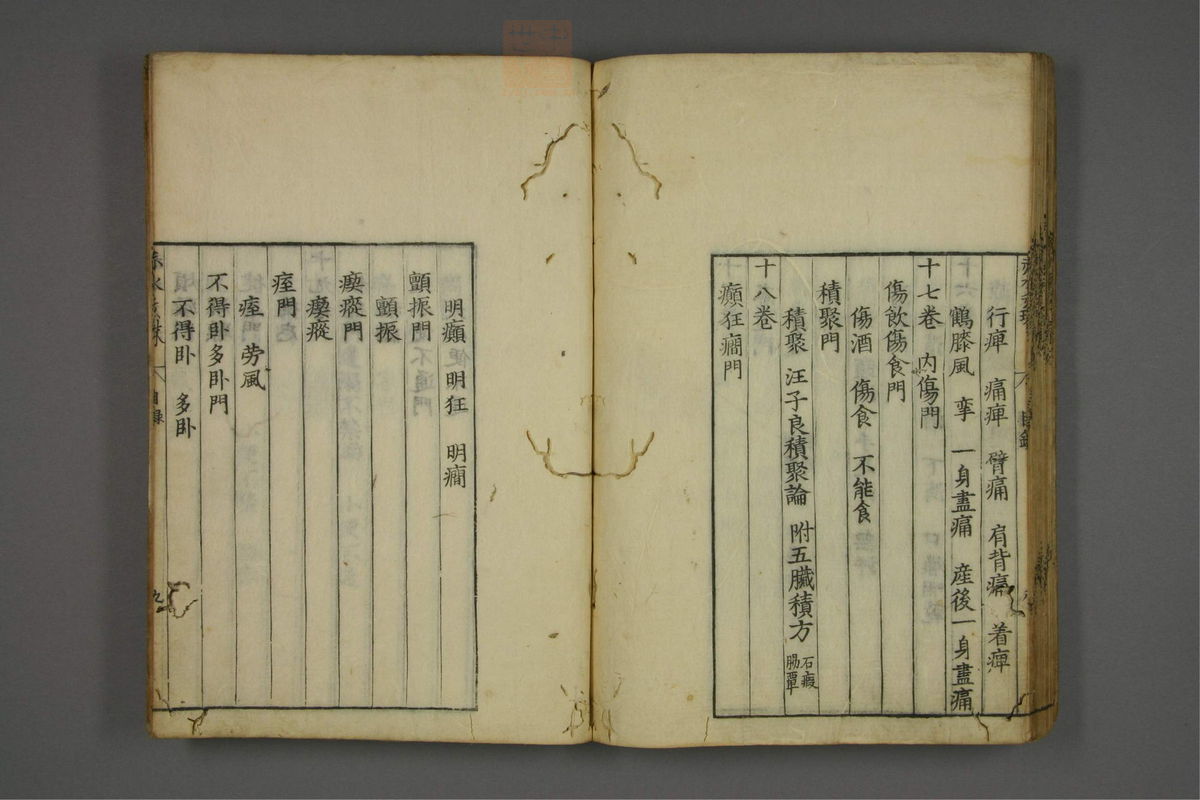 行痺 痛痺 臂痛 肩背痛 着痺
鶴膝風 攣 一身盡痛 産後一身盡痛
十七卷 内傷門
傷飲傷食門
傷酒 傷食 不能食
積聚門
積聚 汪子良積聚論 附五臟積方 石瘕 腸覃
十八卷
癲狂癎門
明癲 明狂 明癎
顫振門
顫振
瘈瘲門
瘈瘲
痓門
痓 勞風
不得卧多卧門
不得卧 多卧
赤水玄珠 目錄 九